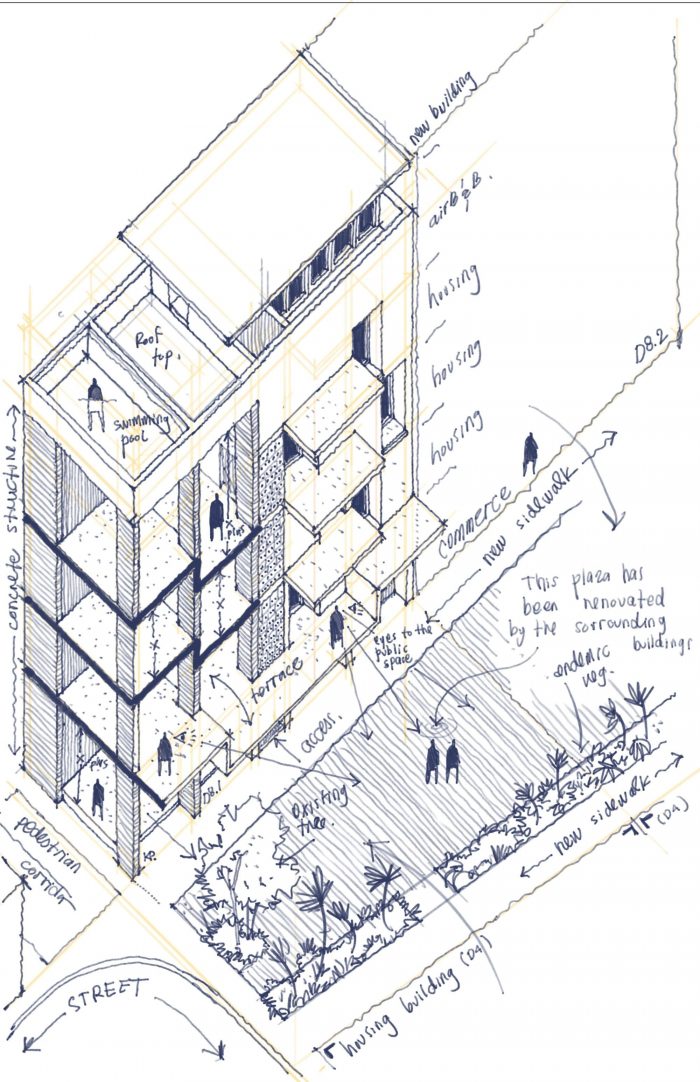 new building
airB&B.
housing
housing
housing
commerce
new sidewalk
D8.2
Roof
top.
swimming
pool
concrete structure
x plns
x
This plaza has
been renovated
by the sorrounding
buildings
endemic
veg.
eyes to the
public
space
terrace
access.
existing
tree.
D8.1
x
plns
pedestrian
corridor
STREET
new sidewalk
(D4)
housing building (D4)